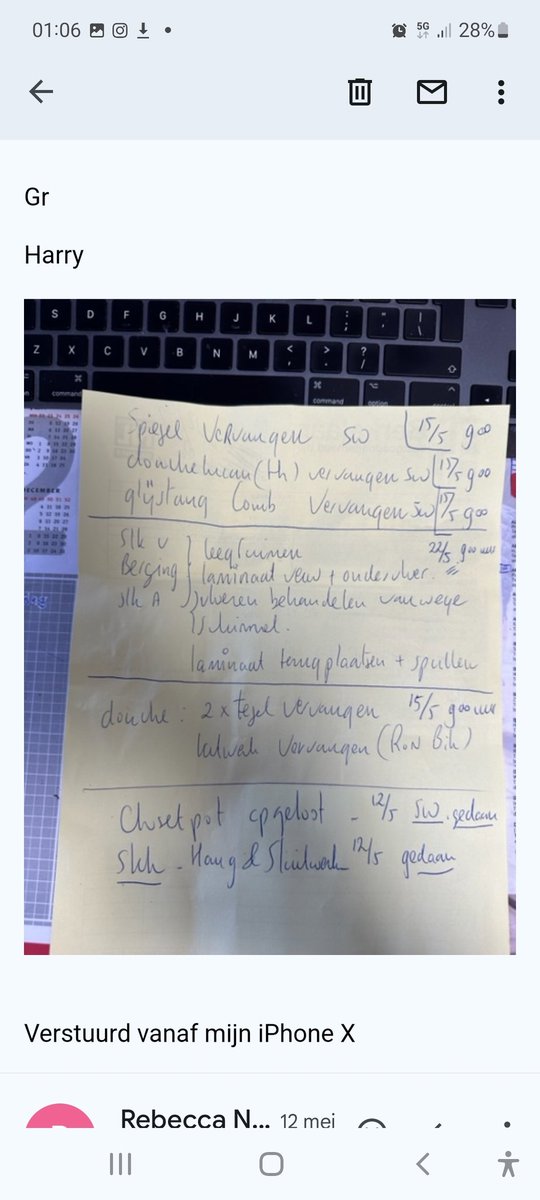 01:06
5G 28%
Gr
Harry
S D F G H J K L : ; " ' | \
Z X C V B N M < , > . ? /
command
command option
Spiegel Vervangen SW 15/5 9 00
douchekraan (th) vervangen SW 15/5 9 00
glijstang Comb Vervangen SW 15/5 9 00
Slk v leegruimen 22/5 9 00 uur
Berging laminaat verw + ondervloer.
Slk A vloeren behandelen vanwege
schimmel.
laminaat terugplaatsen + spullen
douche : 2 x tegel vervangen 15/5 9 00 uur
kitwerk Vervangen (Ron
Closetpot opgelost - 12/5 SW. gedaan
Slk - Hang & Sluitwerk 12/5 gedaan
Verstuurd vanaf mijn iPhone X
Rebecca N... 12 mei